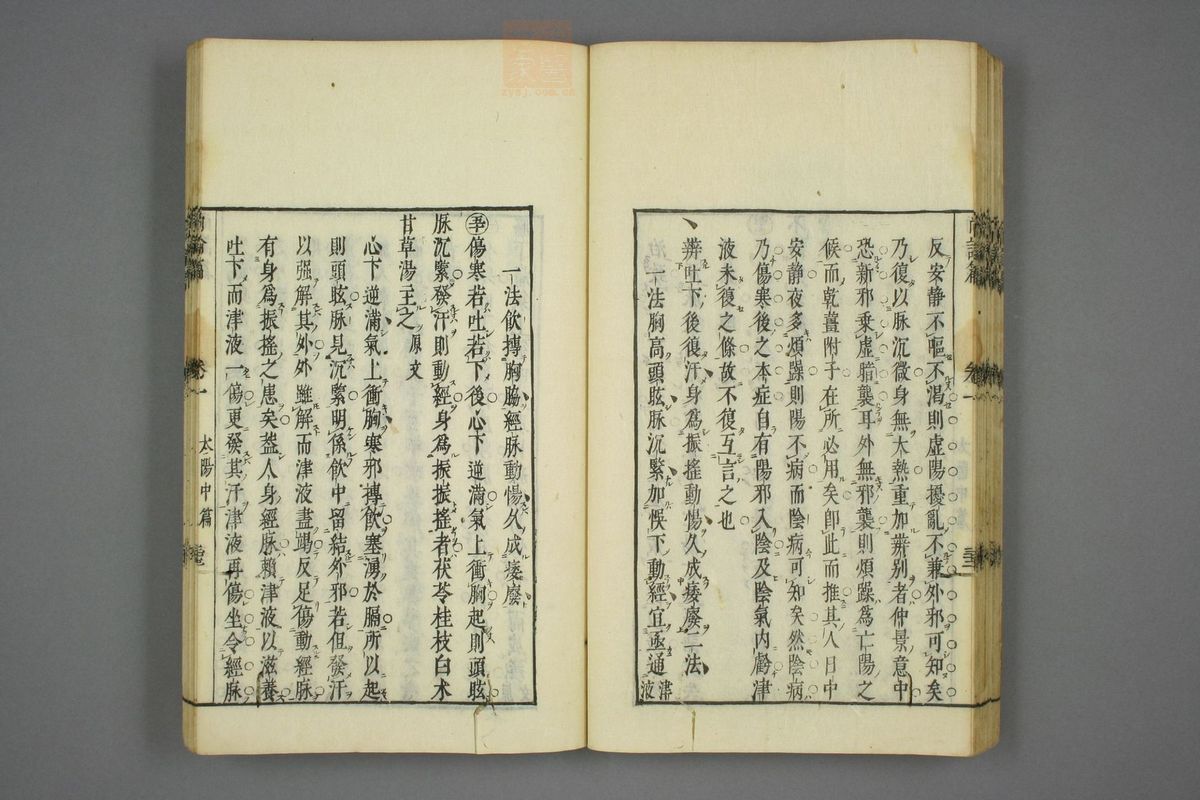 反安靜不嘔不渴則虛陽擾亂不兼外邪可知矣
乃復以脉沉微身無大熱重加辨别者仲景意中
恐新邪乗虛暗襲耳外無邪襲則煩躁為亡陽之
候而乾薑附子在所必用矣卽此而推其人日中
安靜夜多煩躁則陽不病而陰病可知矣然陰病
乃傷寒後之本症自有陽邪入陰及陰氣内虧津
液未復之條故不復互言之也
辨吐下後復汗身為振搖動惕久成痿廢二法
一法胸高頭眩脉沉緊加悞下動經宜亟通津液
尚論篇
卷一
一法飲摶胸脇經脉動惕久成痿廢
傷寒若吐若下後心下逆滿氣上衝胸起則頭眩
脉沉緊發汗則動經身為振振搖者茯苓桂枝白术
甘草湯主之 原文
心下逆滿氣上衝胸寒邪摶飲塞湧於膈所以起
則頭眩脉見沉緊明係飲中留結外邪若但發汗
以强解其外外雖解而津液盡竭反足傷動經脉
有身為振搖之患矣葢人身經脉賴津液以滋養
吐下而津液一傷更發其汗津液再傷坐令經脉
尚論篇
卷一
太陽中篇
zysj.com.cn